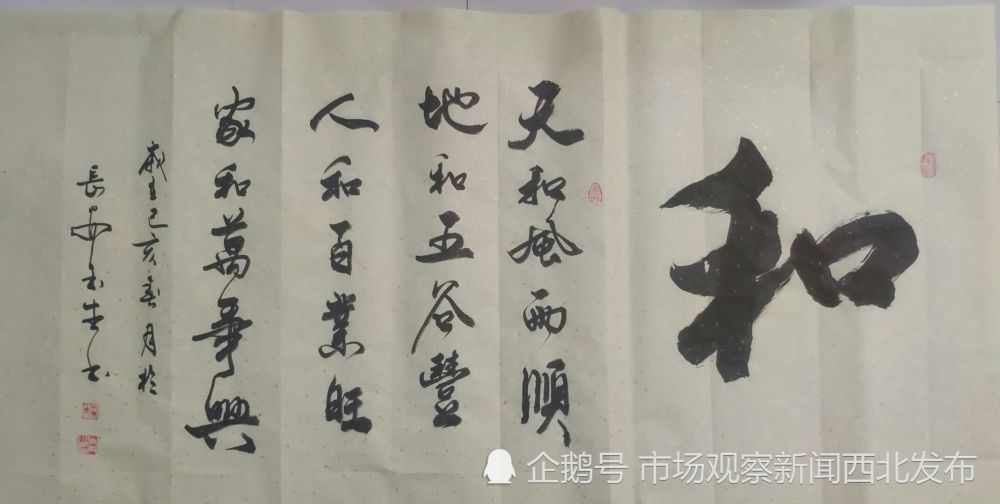 和
天和風雨順
地和五谷豐
人和百業旺
家和萬事興
歲在己亥春月於
長安玉生书
企鹅号 市场观察新闻西北发布